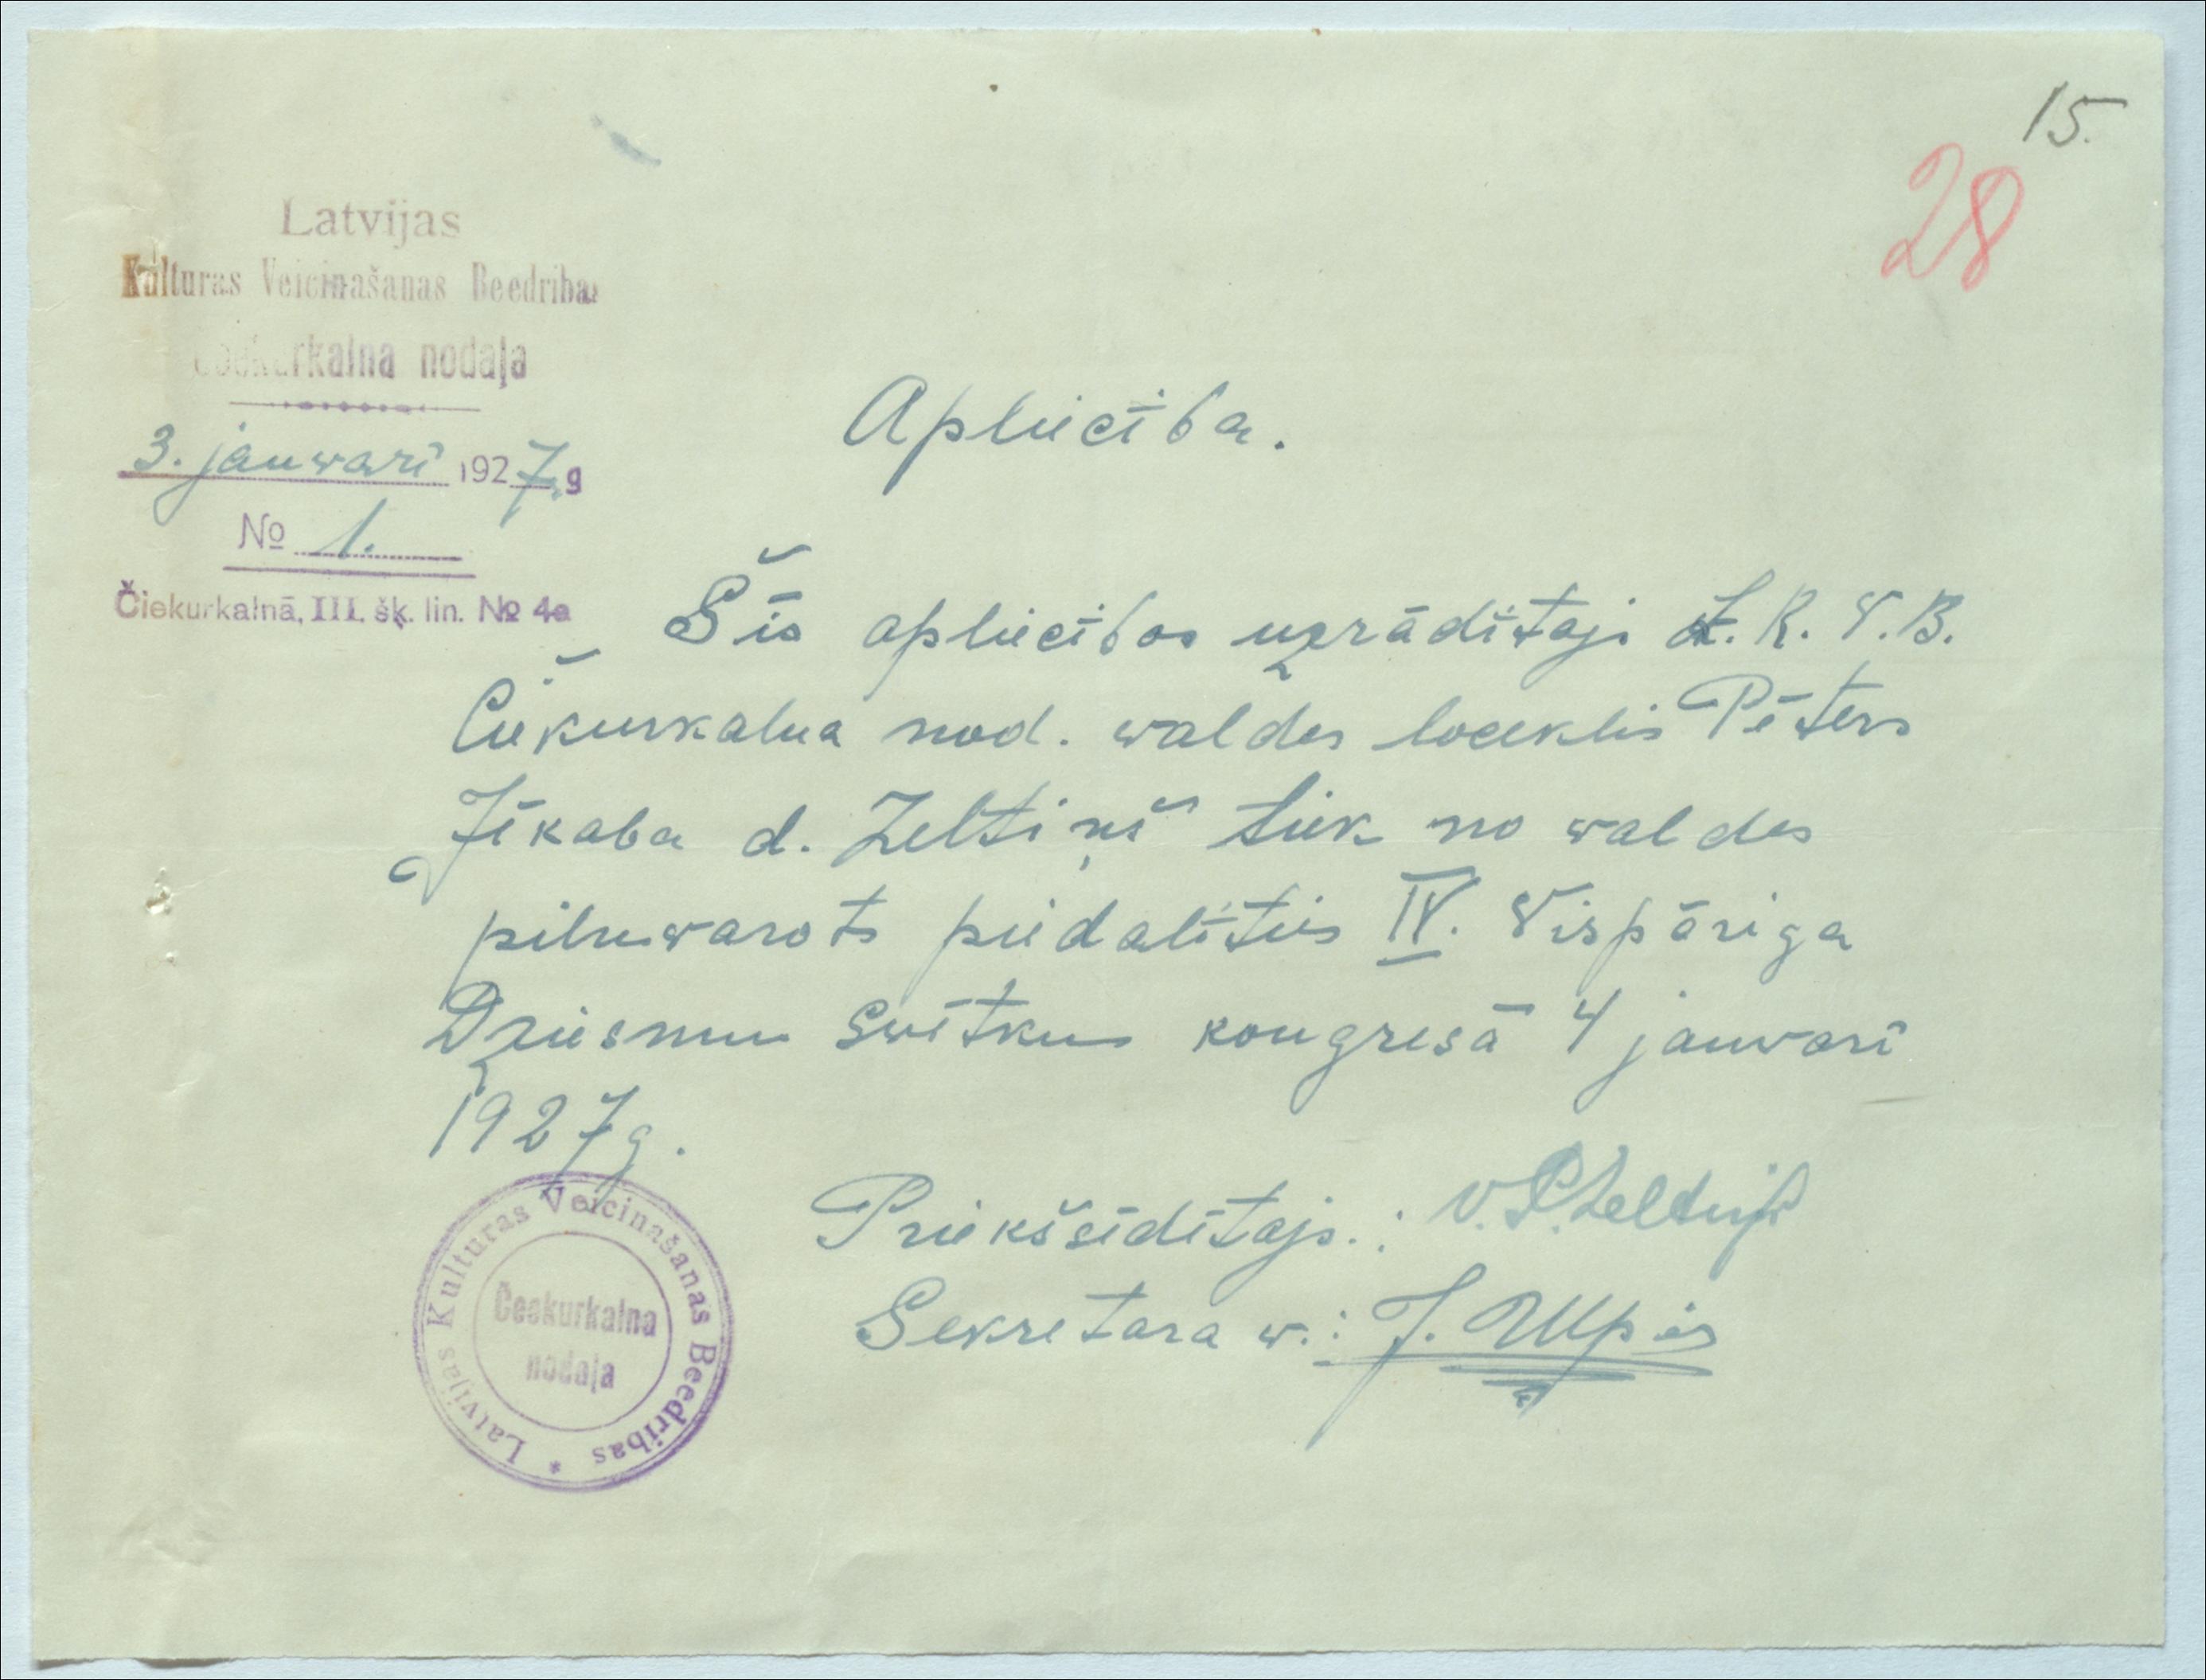 15.
28
Latvijas
Kulturas Veicinašanas Beedribas
Čeekurkalna nodaļa
3. janwarī 1927.g
No 1.
Čiekurkalnā, III. šķ. lin. No 4a
Apliecība.
Šīs apliecības uzrādītajs L. K. V. B.
Čiekurkalna nod. waldes loceklis Pēters
Jēkaba d. Zeltiņš tiek no waldes
pilnwarots piedalīties IV. Vispāriga
Dziesmu swētku kongresā 4 janwarī
1927 g.
Priekšsēdētajs.: v. P. Zeltiņš
Sekretara w.: J. Upis
Latvijas Kulturas Veicinašanas Beedribas *
Čeekurkalna
nodaļa